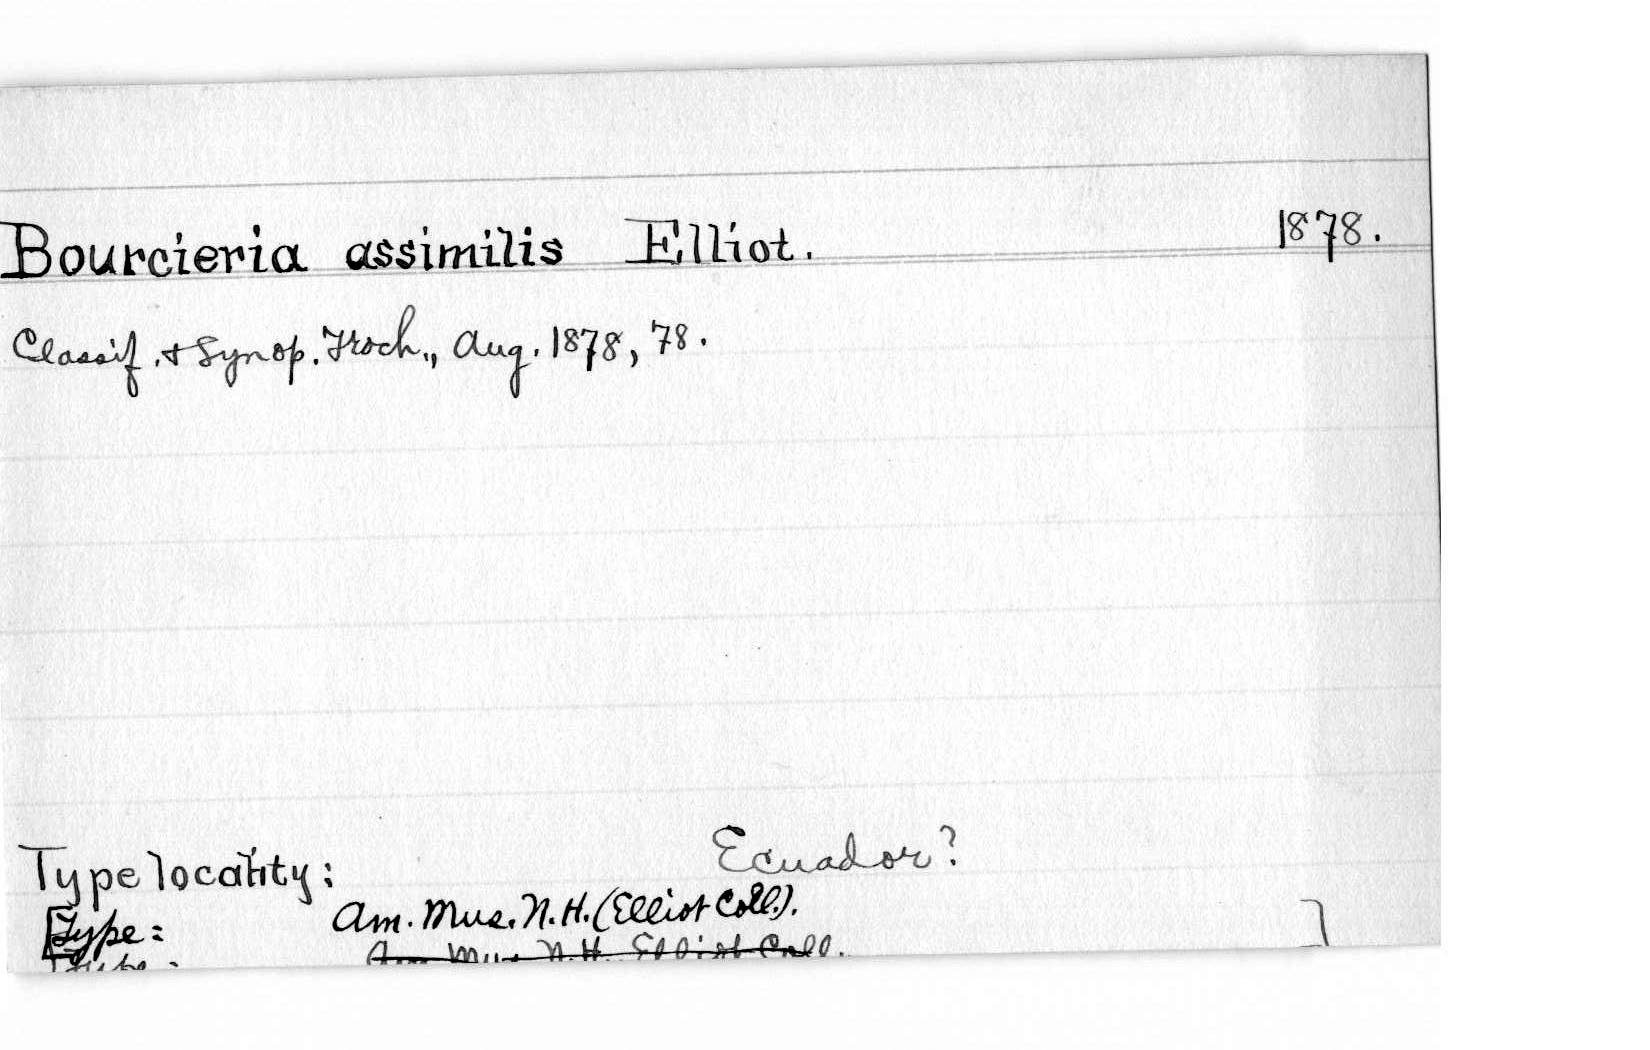 Bourcieria assimilis Elliot. 1878.
Classif. & Synop. Troch., Aug. 1878, 78.
Type locality: Ecuador?
[Type: Am. Mus. N. H. (Elliot Coll.). ]
Type: Am Mus N.H. Elliot Coll.